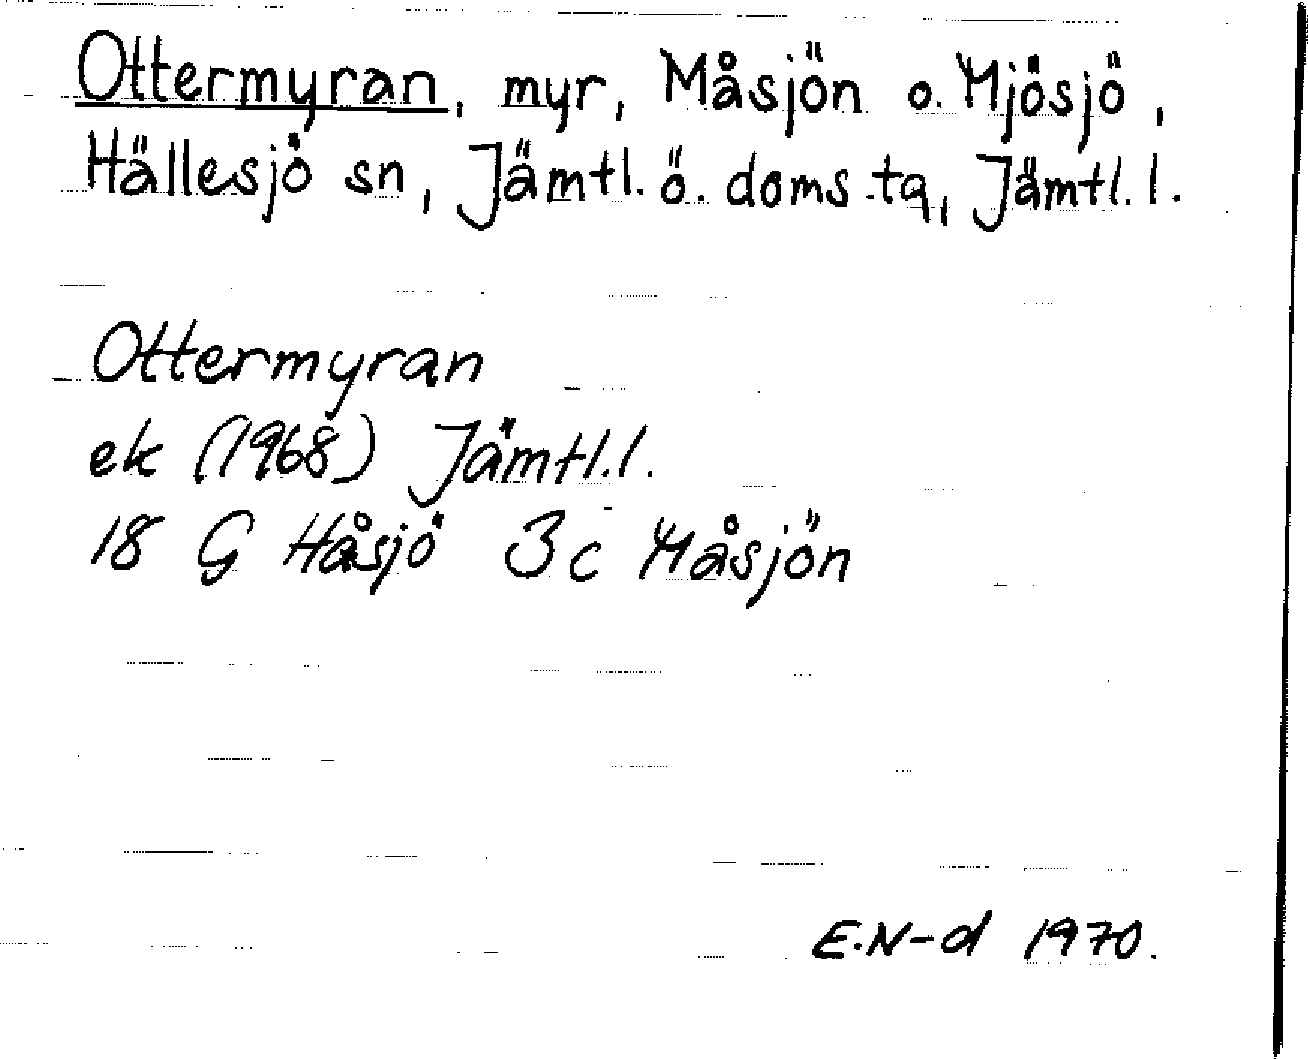 Ottermyran, myr, Måsjön o. Mjösjö,
Hällesjö sn, Jämtl. ö. doms.tq, Jämtl. l.
Ottermyran
ek (1968) Jämtl. l.
18 G Håsjö 3c Måsjön
E.N-d 1970.